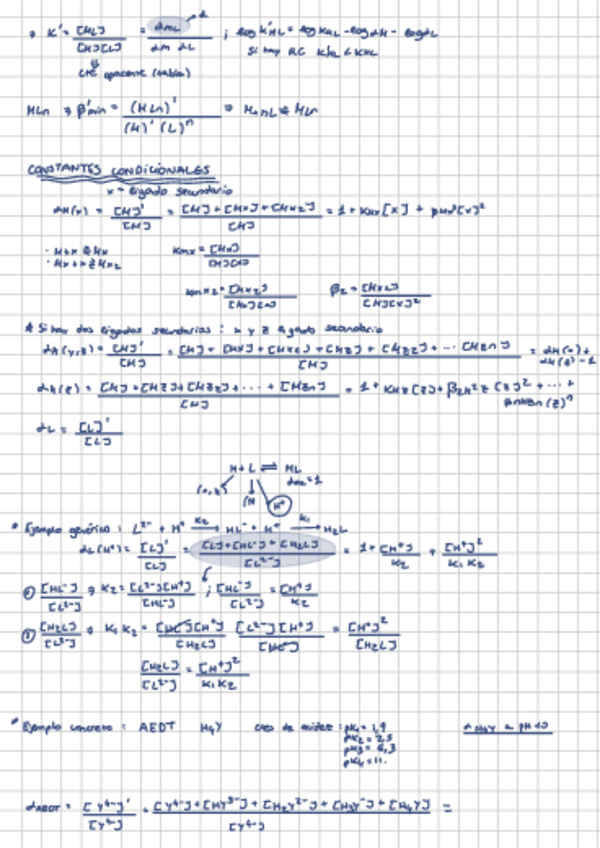 → K' = [ML] / [M][L] = αML / αM αL ; log K'ML = log KML - log αM - log αL
Si hay RC K'ML < KML
cte aparente (tabla)
MLn → β'MLn = (MLn)' / (M)' (L)'ⁿ → M+nL ⇌ MLn
CONSTANTES CONDICIONALES
x = ligado secundario
αM(x) = [M]' / [M] = [M] + [Mx] + [Mx2] / [M] = 1 + KMx [x] + βMx²[x]²
· M+x ⇌ Mx KMx = [Mx] / [M][x]
· Mx+x ⇌ Mx2
KMx2 = [Mx2] / [Mx][x] β2 = [Mx2] / [M][x]²
* Si hay dos ligados secundarios : x y z ligado secundario
[M]' / [M] = [M] + [Mx] + [Mx2] + [Mz] + [Mz2] + ... [Mzn] / [M] = αM(x) + αM(z) - 1
αM(z) = [M] + [Mz] + [Mz2] + ... + [Mzn] / [M] = 1 + KMz [z] + [z]² + ... +
βMzn (z)ⁿ
αL = [L]' / [L]
M + L ⇌ ML
αML = 1
H⁺
* Ejemplo genérico : L²⁻ + H⁺ K2 → HL⁻ + H⁺ K1 → H2L
αL(H⁺) = [L]' / [L] = [L] + [HL⁻] + [H2L] / [L²⁻] = 1 + [H⁺] / K2 + [H⁺]² / K1 K2
① [HL⁻] / [L²⁻] → K2 = [L²⁻][H⁺] / [HL⁻] ; [HL⁻] / [L²⁻] = [H⁺] / K2
② [H2L] / [L²⁻] → K1 K2 = [HL⁻][H⁺] / [H2L] [L²⁻][H⁺] / [HL⁻] = [H⁺]² / [H2L]
[H2L] / [L²⁻] = [H⁺]² / K1 K2
* Ejemplo concreto : AEDT H4Y Ctes de acidez : pK1 = 1,9
pK2 = 2,5
pK3 = 6,3
pK4 = 11.
αAEDT = [Y⁴⁻]' / [Y⁴⁻] = [Y⁴⁻] + [HY³⁻] + [H2Y²⁻] + [H3Y⁻] + [H4Y] / [Y⁴⁻] =